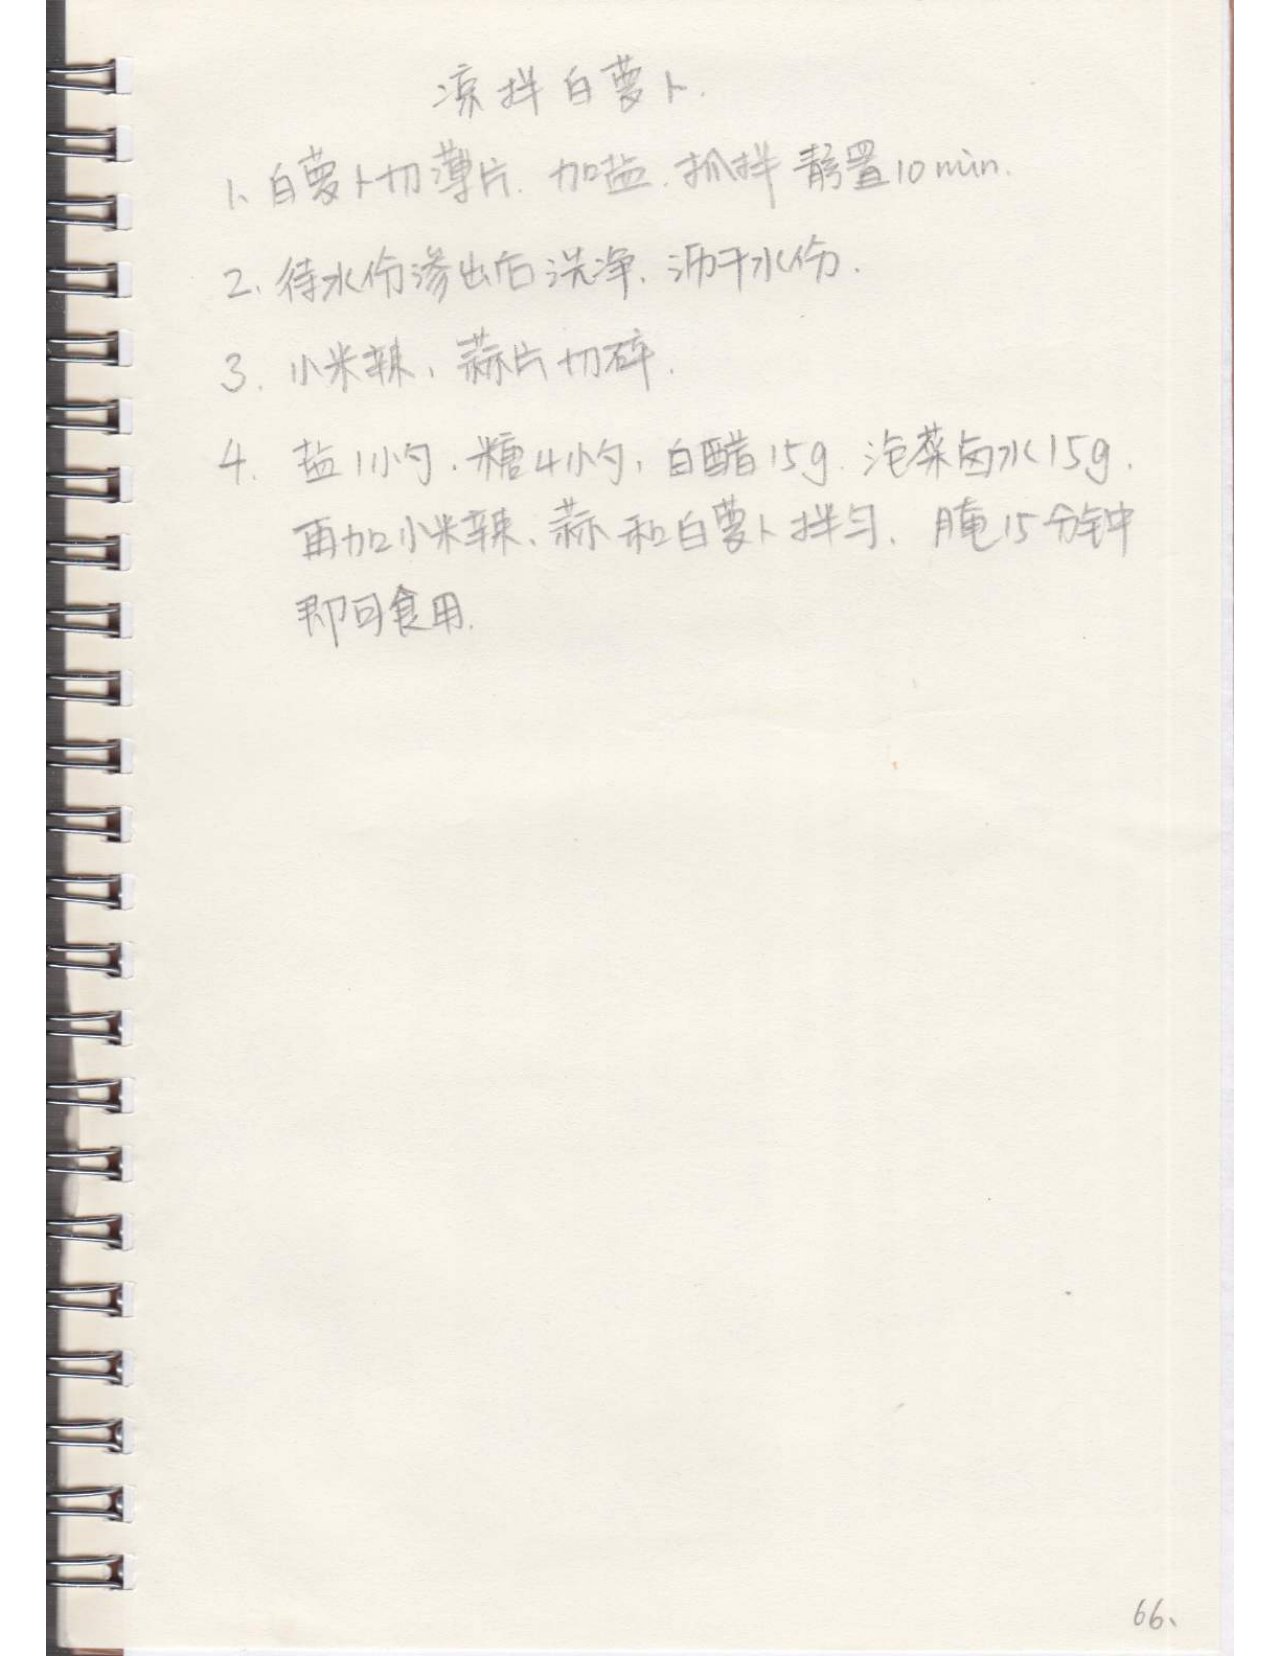 凉拌白萝卜.
1、白萝卜切薄片.加盐.抓拌 静置10min.
2、待水份渗出后洗净.沥干水份.
3.小米辣,蒜片切碎.
4.盐1小勺.糖4小勺,白醋15g.泡菜卤水15g.
再加小米辣、蒜和白萝卜拌匀、腌15分钟
即可食用.
66、